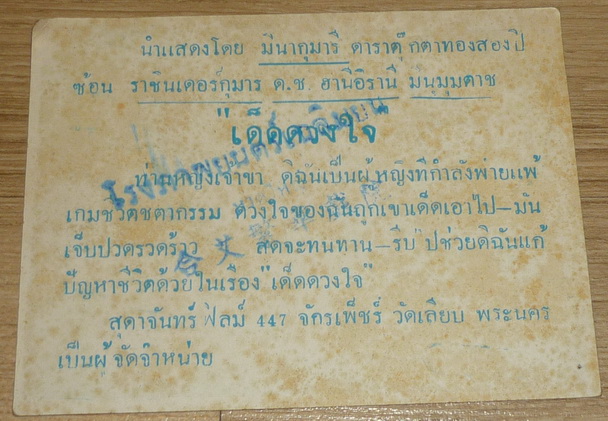 นำแสดงโดย มีนากุมารี ดาราตุ๊กตาทองสองปี
ซ้อน ราชินเดอร์กุมาร ด.ช. ฮานีอิรานี มนุมุมตาช
"เด็ดดวงใจ"
โรงภาพยนตร์
ท่านหญิงเจ้าขา ดิฉันเป็นผู้หญิงที่กำลังพ่ายแพ้
เกมชีวิตชตากรรม ดวงใจของฉันถูกเขาเด็ดเอาไป—มัน
เจ็บปวดรวดร้าว สุดจะทนทาน—รีบไปช่วยดิฉันแก้
ปัญหาชีวิตด้วยในเรื่อง "เด็ดดวงใจ"
สุดาจันทร์ฟิลม์ 447 จักรเพ็ชร์ วัดเลียบ พระนคร
เป็นผู้จัดจำหน่าย